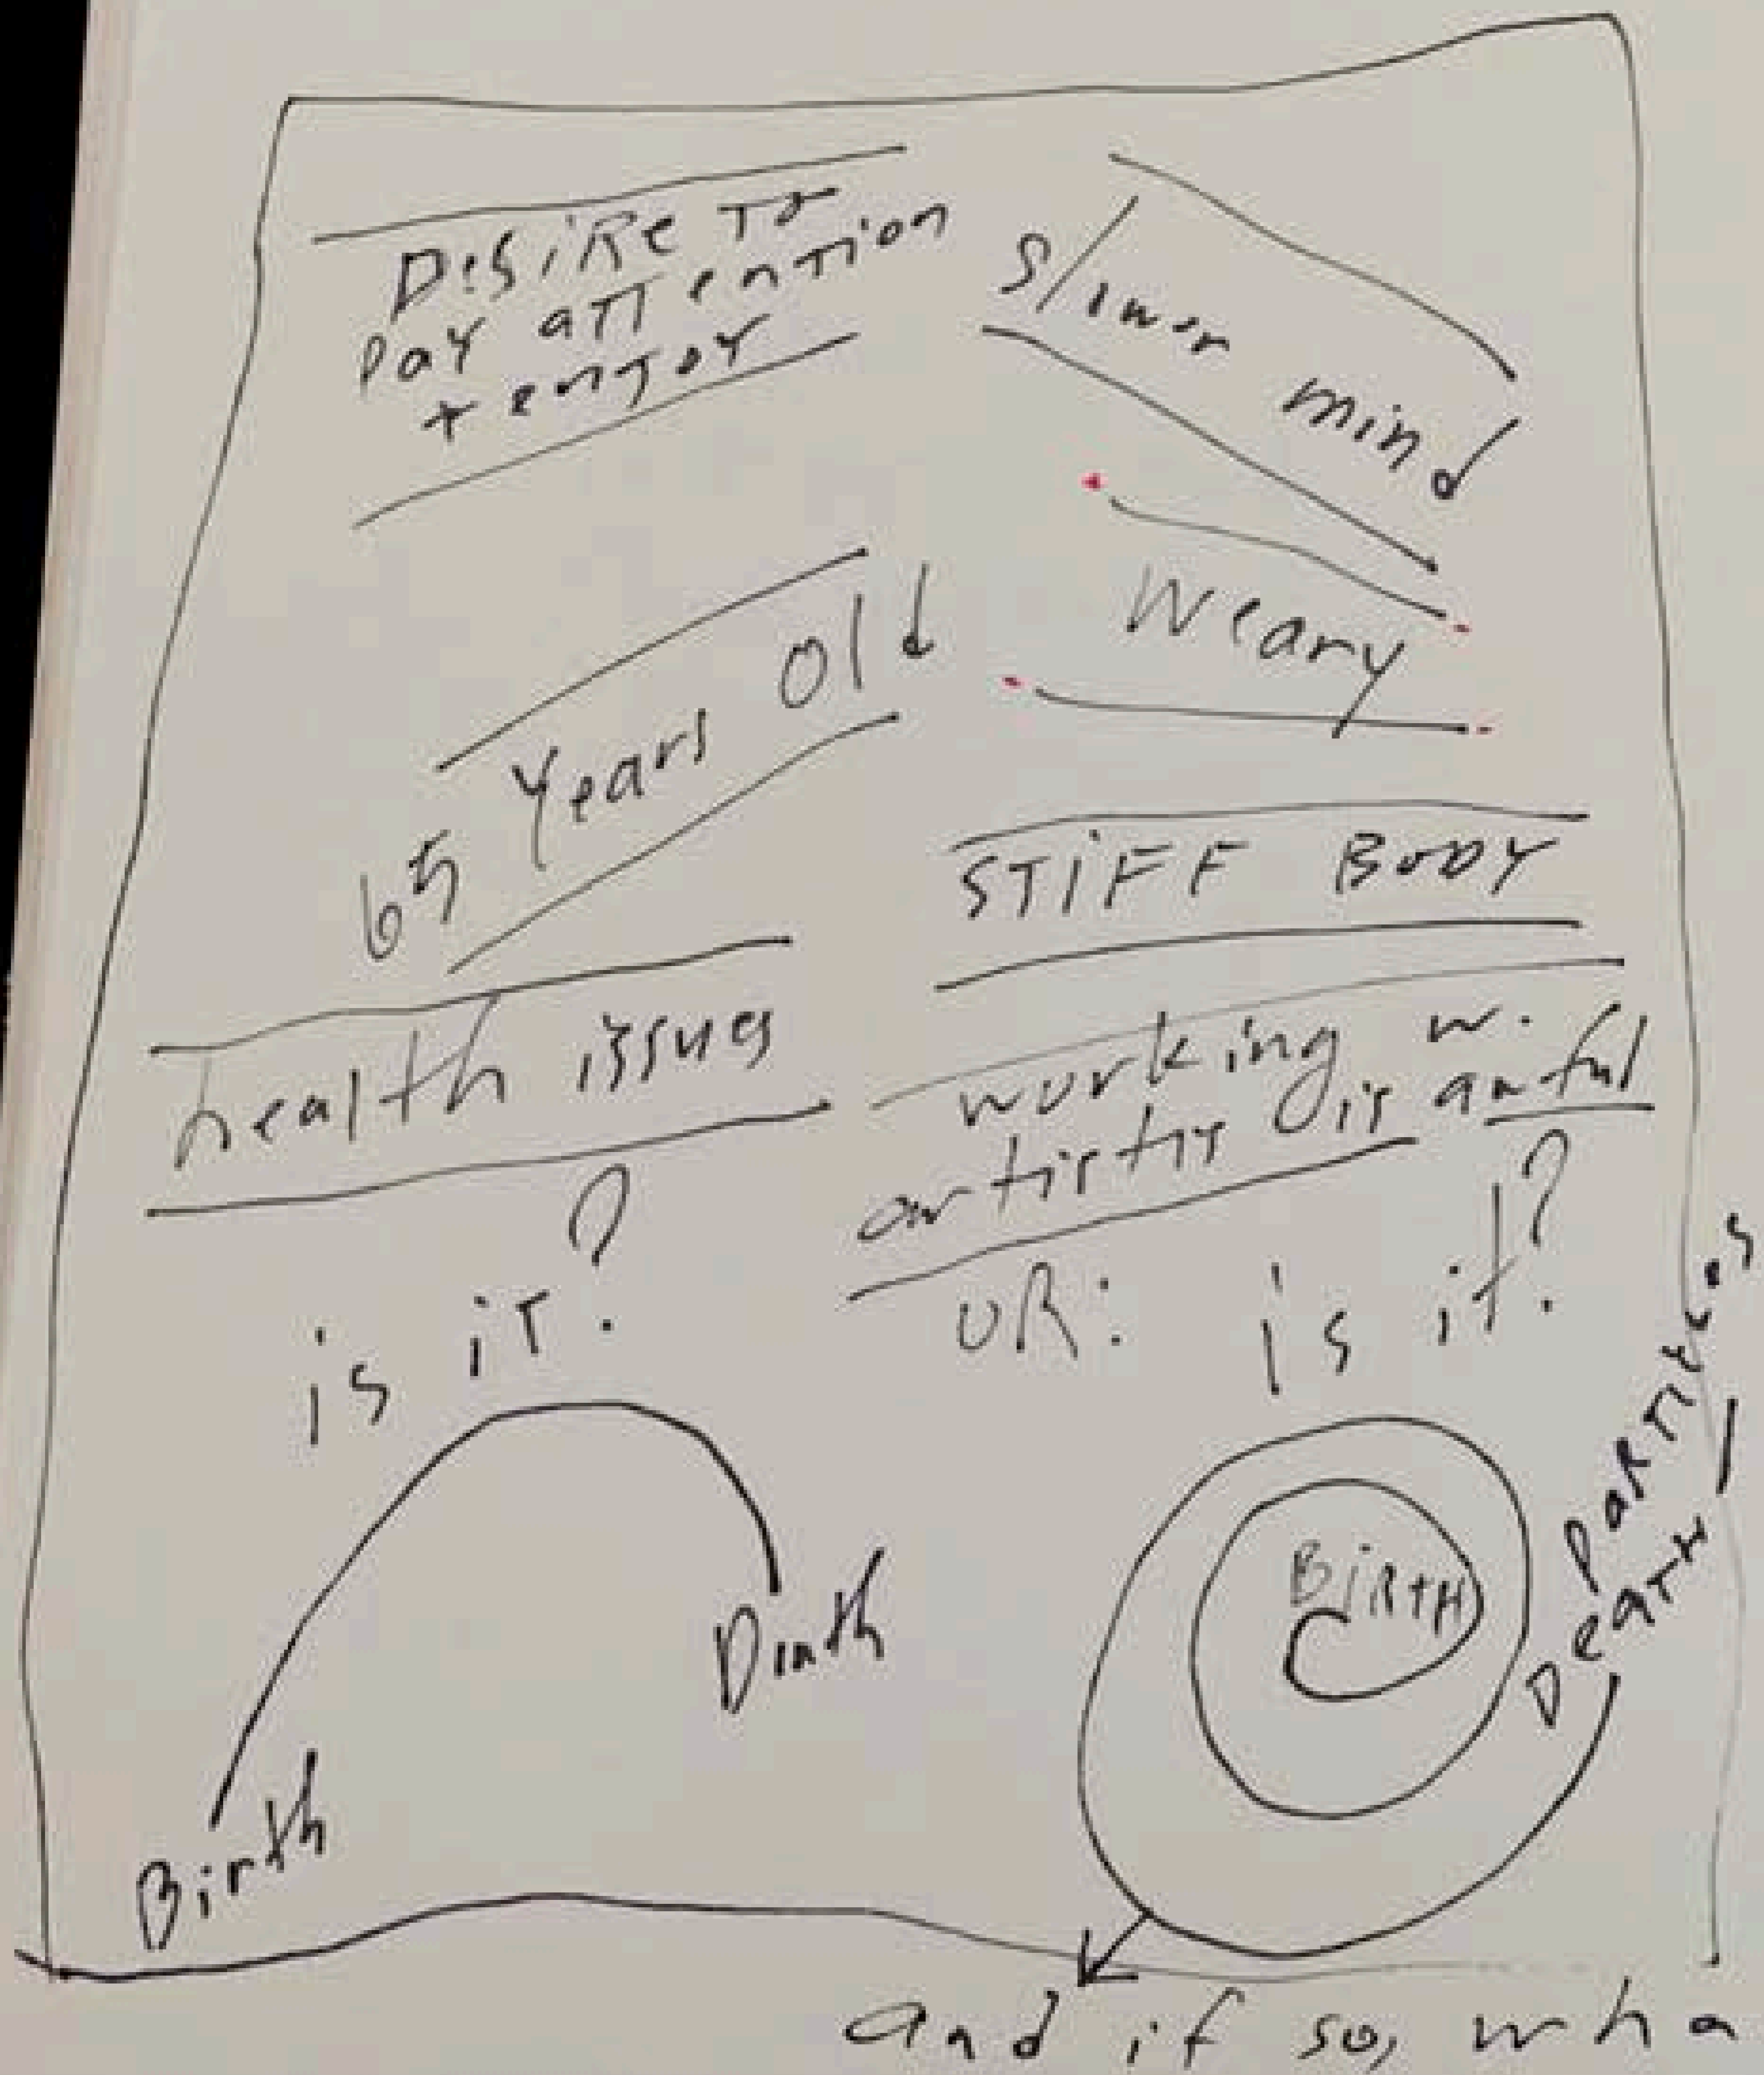 Desire to
pay attention
+ enjoy
Slower mind
Weary
65 years old
STIFF BODY
health issues
working w.
artists is awful
is it?
OR: is it?
Birth
Death
BIRTH
Particles
Death
and if so, wha